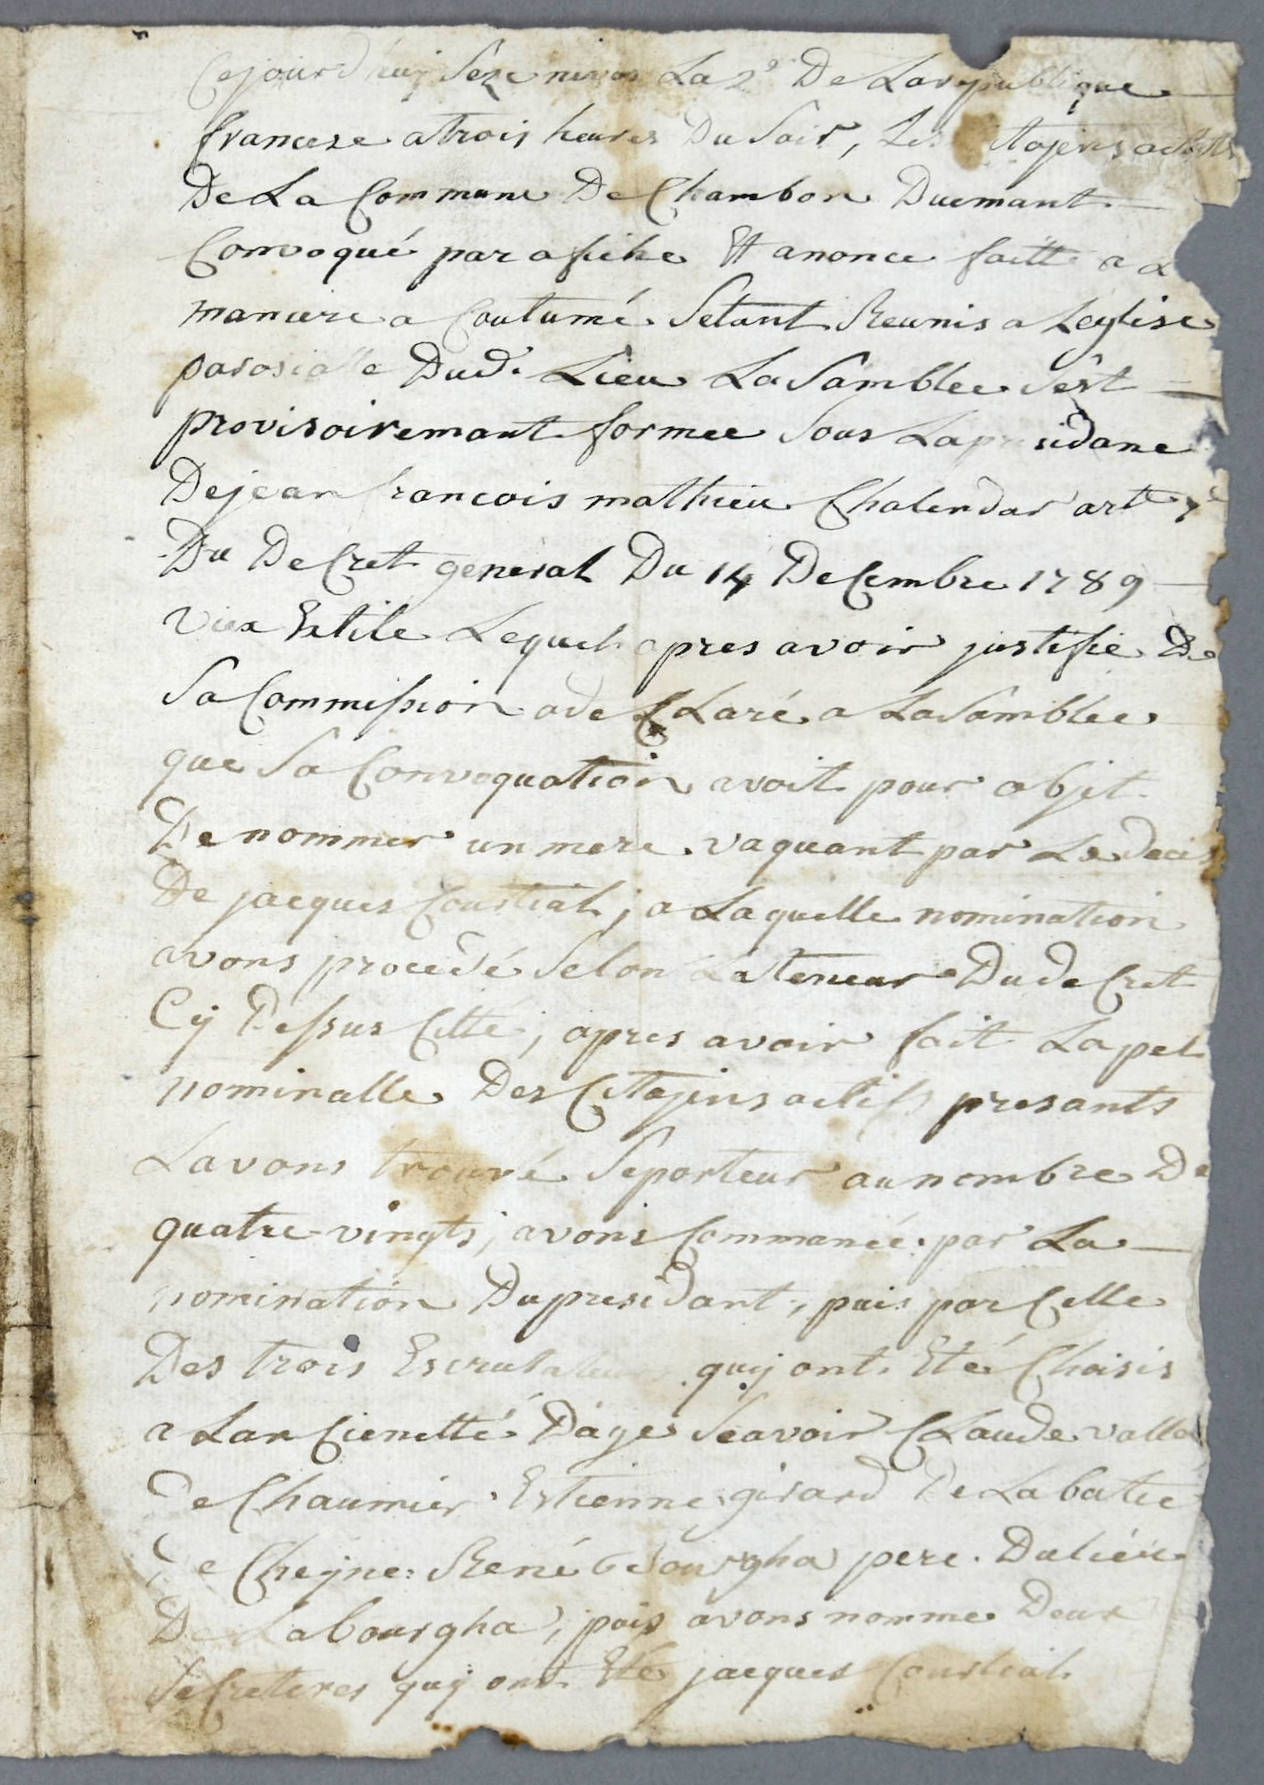 Cejourd'huy Seze nivos La 2e De Larepublique
francese atrois heures Du Soir, Les Citoyens actifs
De La Commune De Chambon Duemant
Convoqué par afiche Et anonce faitte a La
maniere a Coutumé Setant Reunis a Leglise
parosialle Dud. Lieu La Samblee Sest
provisoiremant formee Sous Lapresidance
Dejean francois mathieu Chalendar art 7e
Du DeCret general Du 14 DeCembre 1789
Viex Estile Lequel apres avoir justifie De
Sa Commission adeCLaré a LaSamblee
que Sa Convoquation avoit pour objet
De nommer un mere vaquant par Le deces
De jacques Coustial; a Laquelle nomination
avons procedé Selon La teneur Du deCret
Cy Dessus Citté, apres avoir fait Lapel
nominalle Des Citoyens actifs presants
Lavons trouvé Seporteur aunombre De
quatre-vingts; avons Commancé par La
nomination Dupresidant, puis par Celle
Des trois Escrutateurs quy ont Eté Choisis
a LanCienetté Dage Scavoir CLaude valla
De Chaumier Estienne girard De Labatie
De Cheyne: René bourgha pere. Daliere
De Labourgha, puis avons nomme Deux
SeCreteres quy ont Eté jacques Coustial